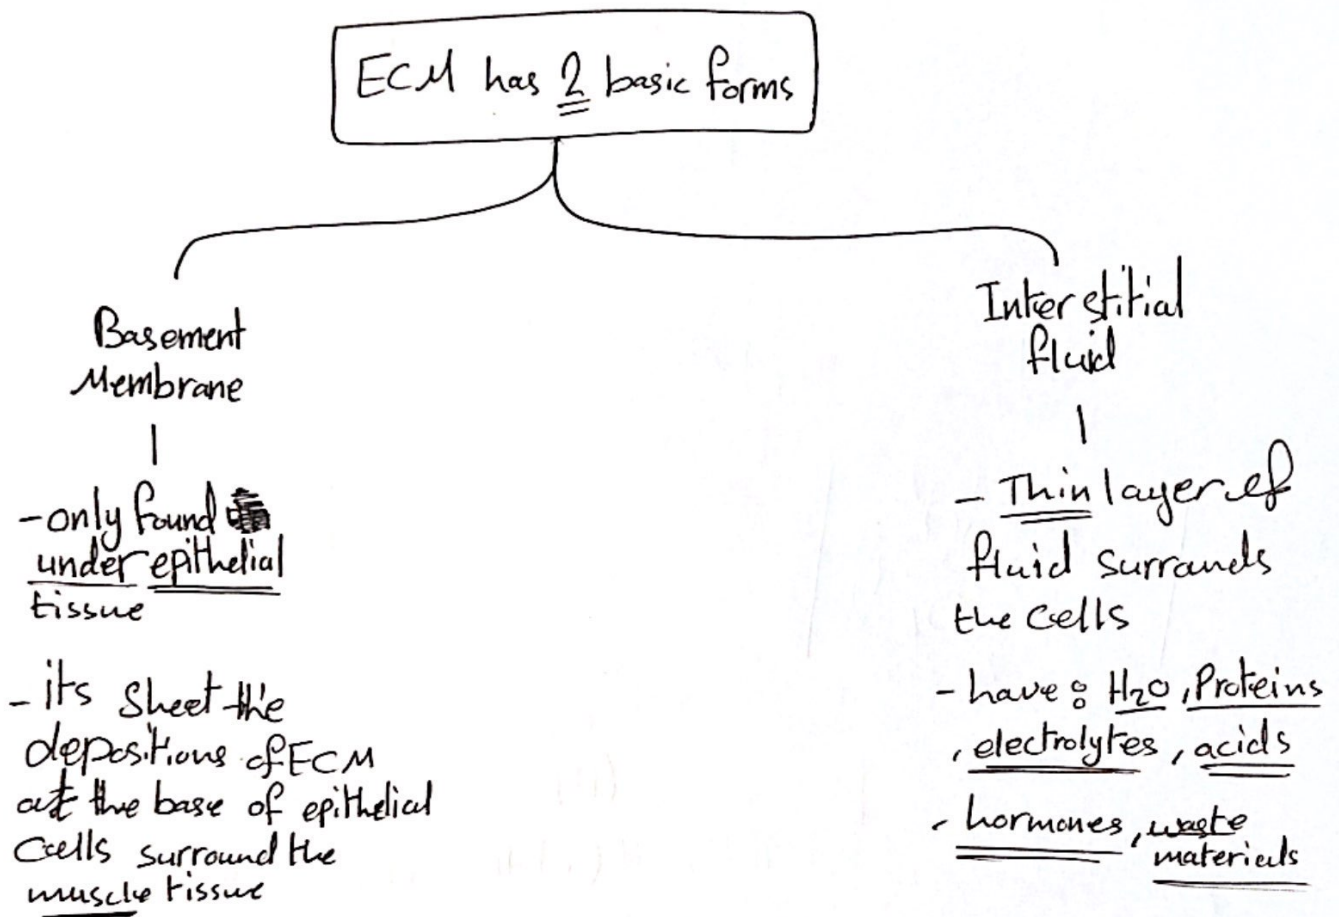 ECM has 2 basic forms
Basement
Membrane
- only found
under epithelial
tissue
- its sheet the
depositions of ECM
at the base of epithelial
cells surround the
muscle tissue
Interstitial
fluid
- Thin layer of
fluid surrounds
the cells
- have : H₂O , Proteins
, electrolytes , acids
, hormones , waste
materials